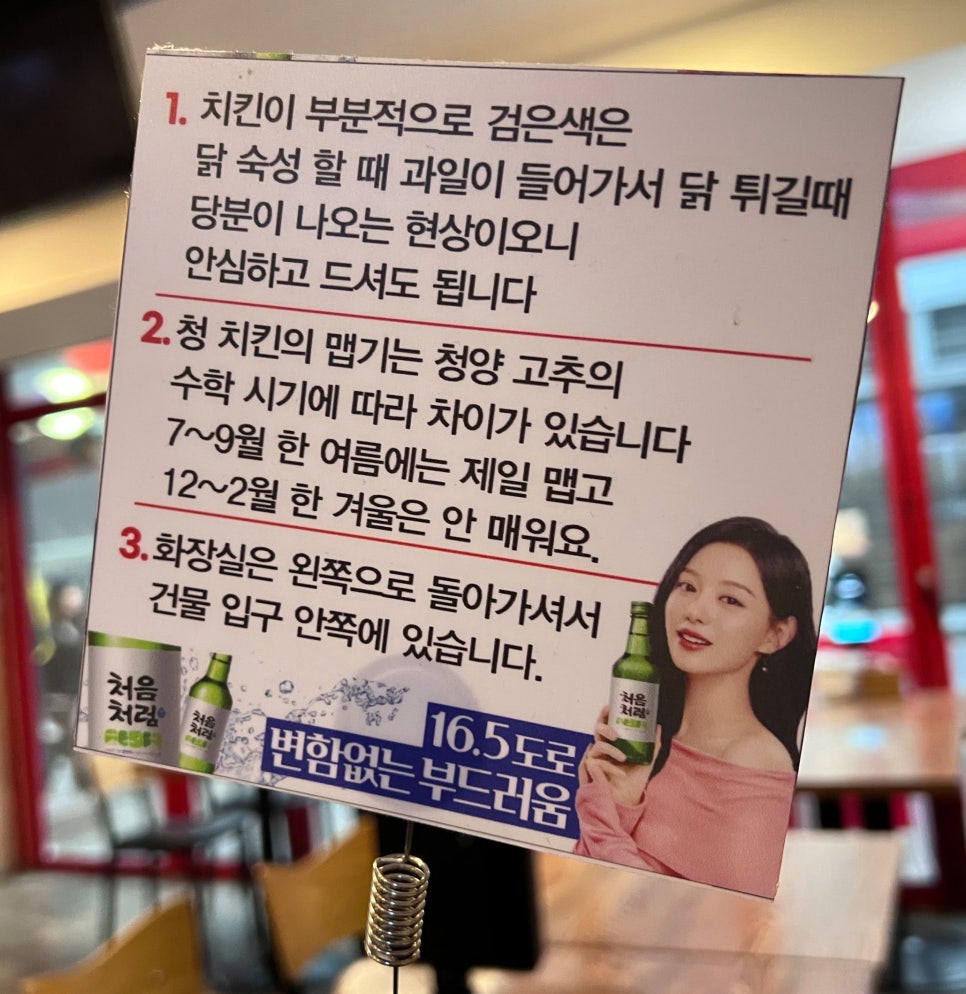 1. 치킨이 부분적으로 검은색은
닭 숙성 할 때 과일이 들어가서 닭 튀길때
당분이 나오는 현상이오니
안심하고 드셔도 됩니다
2. 청 치킨의 맵기는 청양 고추의
수학 시기에 따라 차이가 있습니다
7~9월 한 여름에는 제일 맵고
12~2월 한 겨울은 안 매워요.
3. 화장실은 왼쪽으로 돌아가셔서
건물 입구 안쪽에 있습니다.
처음
처럼
처음
처럼
처음
처럼
16.5도로
변함없는 부드러움